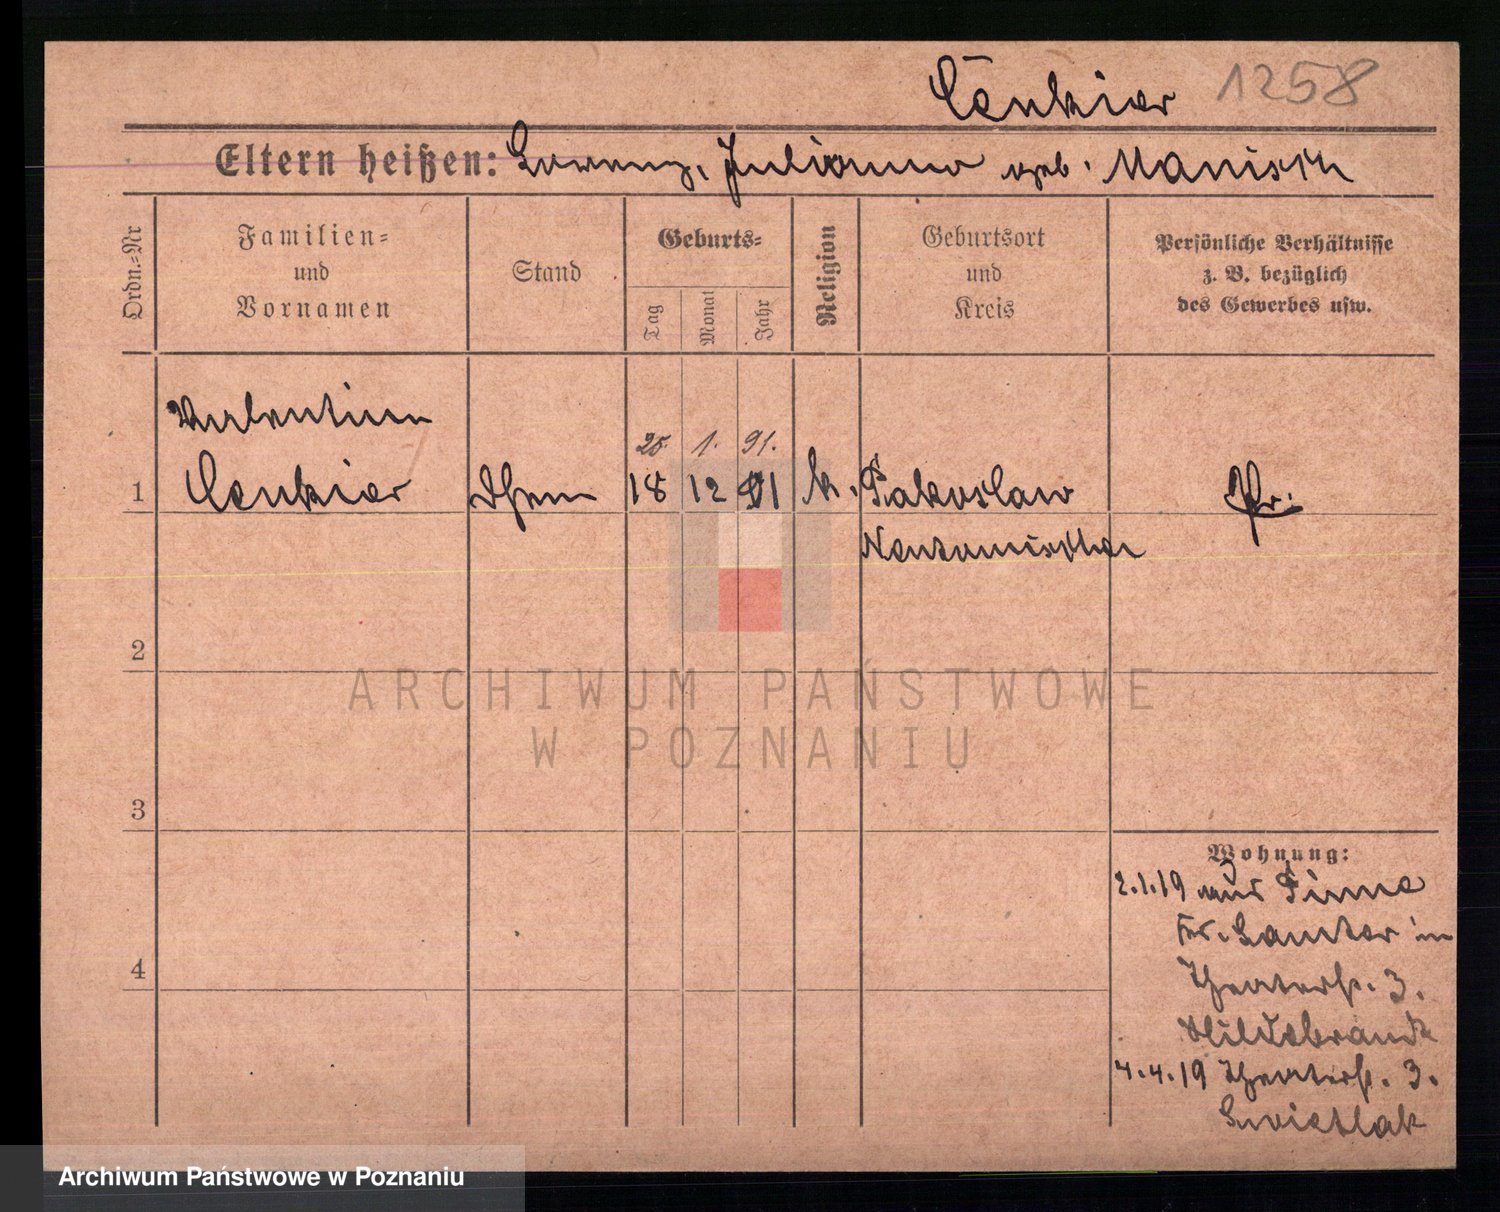 Cenkier 1258
Eltern heißen: Lorenz, Julianna geb. Manisch
Ordn.-Nr
Familien-
und
Vornamen
Stand
Geburts-
Tag
Monat
Jahr
Religion
Geburtsort
und
Kreis
Persönliche Verhältnisse
z. B. bezüglich
des Gewerbes usw.
Valentin
25. 1. 91.
1 Cenkier 18 12 91 k. Pakoslaw Pr.
Neutomischel
2
ARCHIWUM PAŃSTWOWE
W POZNANIU
3
Wohnung:
2.1.19 aus Pinne
4
Theaterstr. 3.
Hildebrandt
4.4.19 Theaterstr. 3.
Swietlak
Archiwum Państwowe w Poznaniu